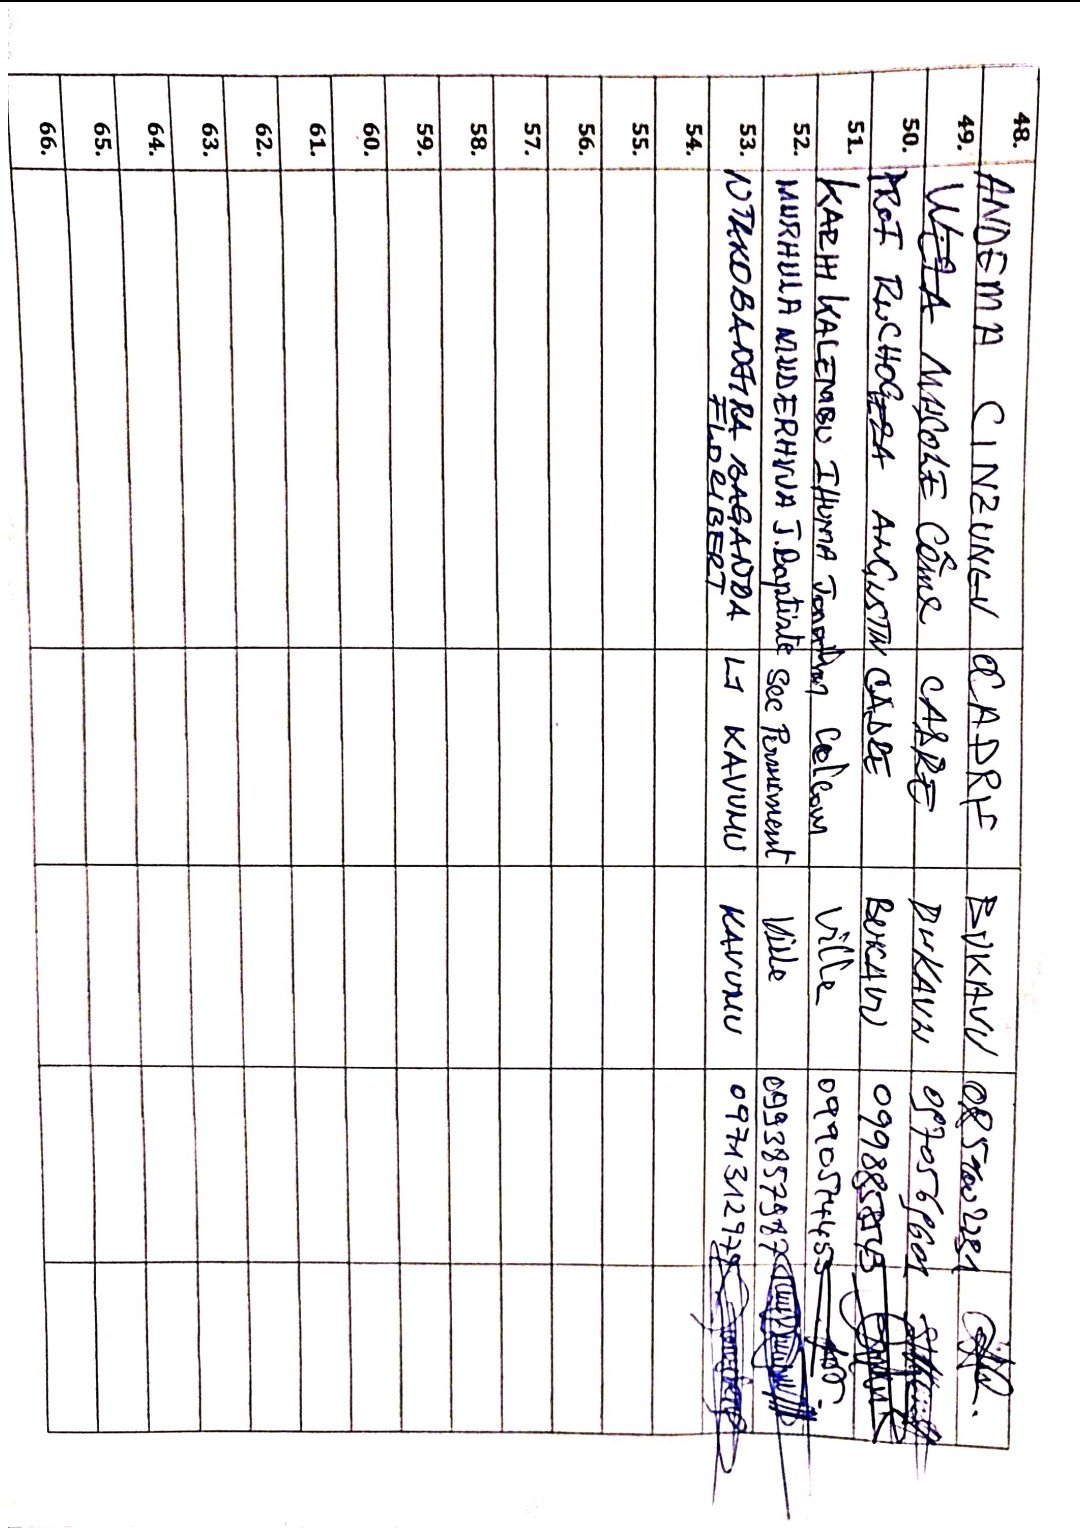 48. ANDEMA CINZUNGU CADRE BUKAVU
49. WEZA MASOLE Côme CADRE BUKAVU
50. PROF RUCHOGEZA AUGUSTIN CADRE BUKAVU 0998858545
51. KAZHI KALEMBU IHUMA Jonathan Celcom Ville 0990544455
52. MURHULA MUDERHWA J.Baptiste Sec Permement Ville 0993857987
53. NTAKOBANJIRA BAGANDA LT KAVUMU KAVUMU 097131297
FLORIBERT
54.
55.
56.
57.
58.
59.
60.
61.
62.
63.
64.
65.
66.